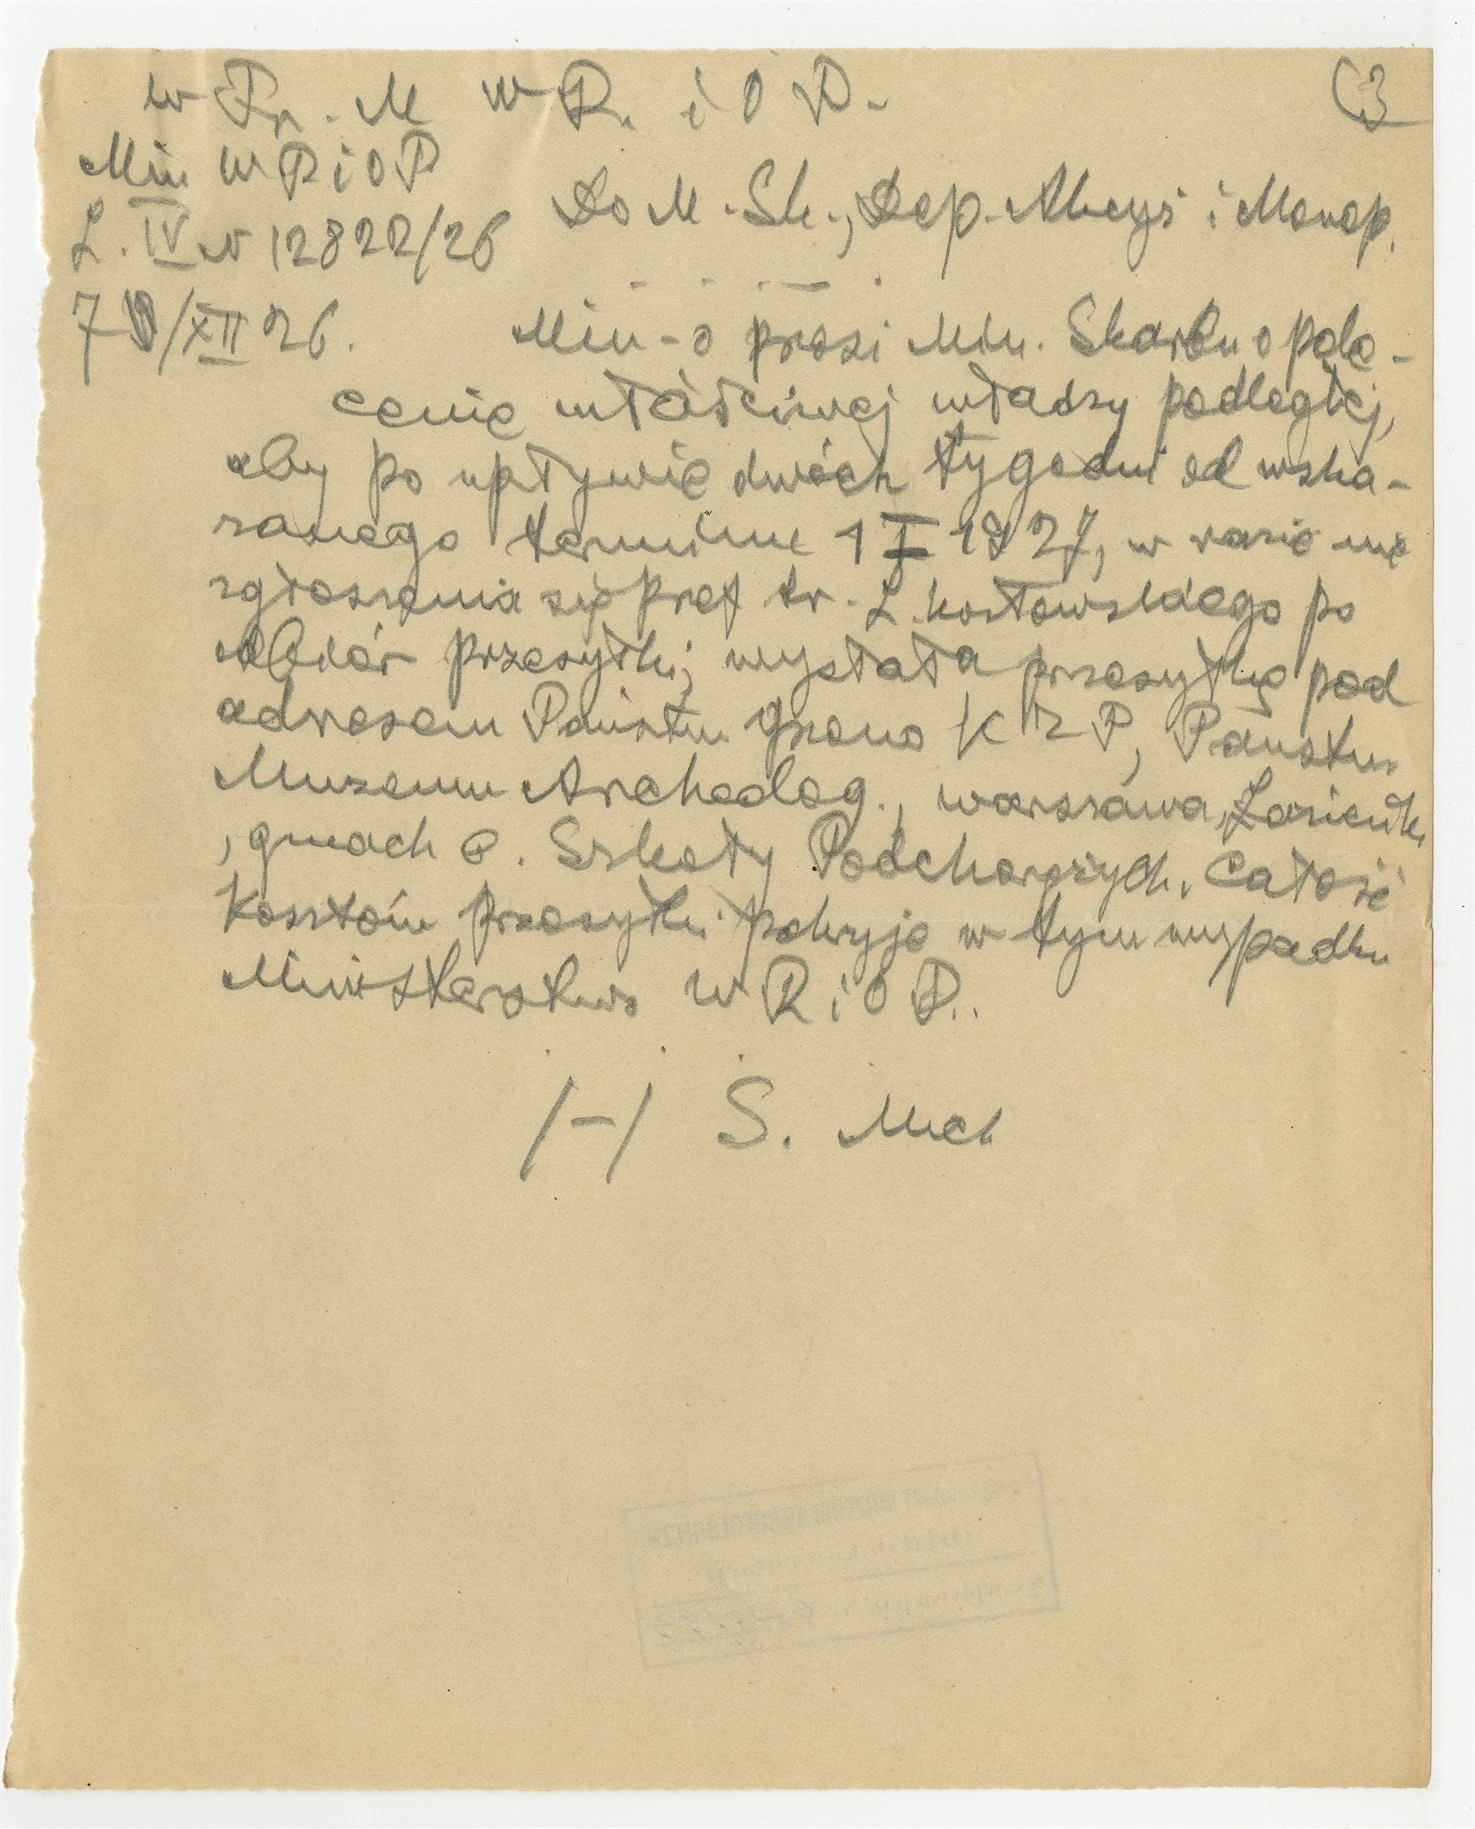 w Pr. M W R. i O P.
(3
Min W R i O P
L. IV N 12822/26
Do M. Sk., Dep. Akcyz i Monop.
7 /XII 26.
Min-o prosi Min. Skarbu o pole-
cenie właściwej władzy podległej,
aby po upływie dwóch tygodni od wska-
zanego terminu 1 I 1927, w razie nie
zgłoszenia się prof dr. L. Kozłowskiego po
odbiór przesyłki, wysłała przesyłkę pod
adresem Państw. Grono K Z P, Państw.
Muzeum Archeolog., Warszawa, Łazienki
, gmach b. Szkoły Podchorążych. Całość
kosztów przesyłki pokryje w tym wypadku
Ministerstwo W R i O P..
/-/ S. Mich